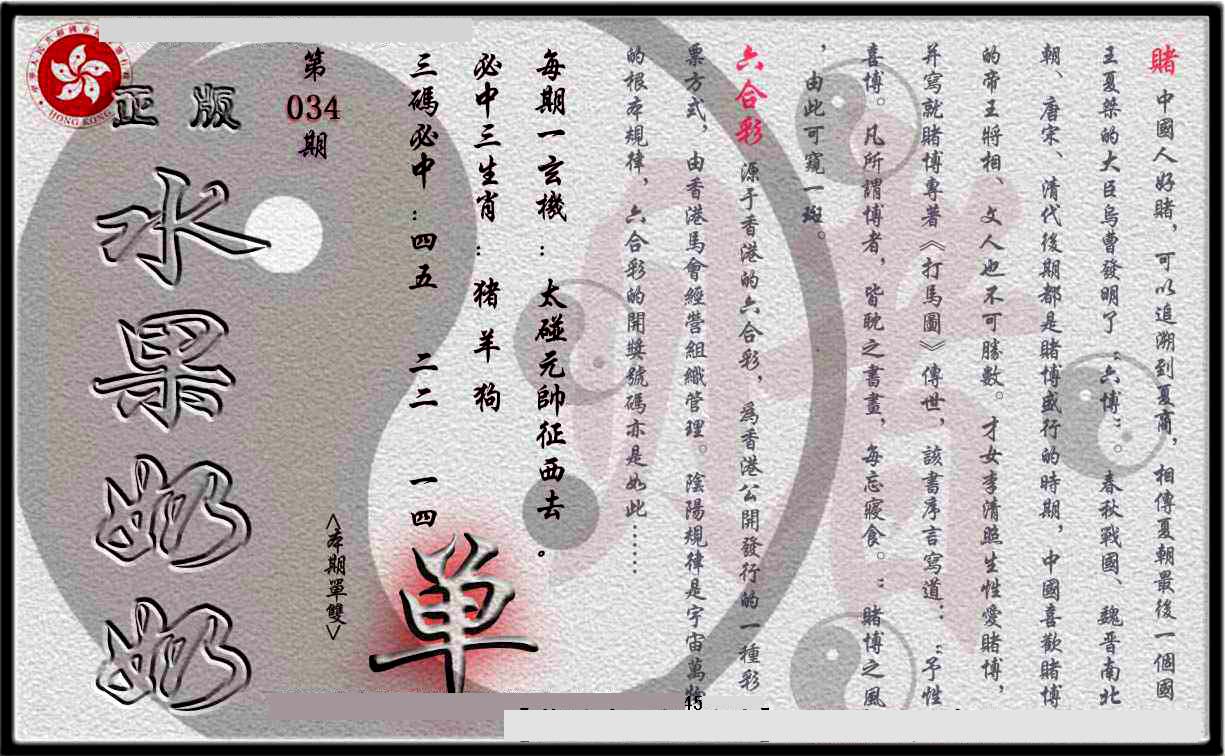 賭 中國人好賭，可以追溯到夏商，相傳夏朝最後一個國
王夏桀的大臣烏曹發明了“六博”。春秋戰國、魏晋南北
朝、唐宋、清代後期都是賭博盛行的時期，中國喜歡賭博
的帝王將相、文人也不可勝數。才女李清照生性愛賭博，
并寫就賭博專著《打馬圖》傳世，該書序言寫道：“予性
喜博。凡所謂博者，皆耽之書畫，每忘寢食。”賭博之風
，由此可窺一斑。
六合彩 源于香港的六合彩，爲香港公開發行的一種彩
票方式，由香港馬會經營組織管理。陰陽規律是宇宙萬物
的根本規律，六合彩的開獎號碼亦是如此……
每期一玄機：太碰元帥征西去。
必中三生肖：猪羊狗
三碼必中：四五 二二 一四
单
<本期單雙>
第
034
期
正版
水果奶奶
HONG KONG
45